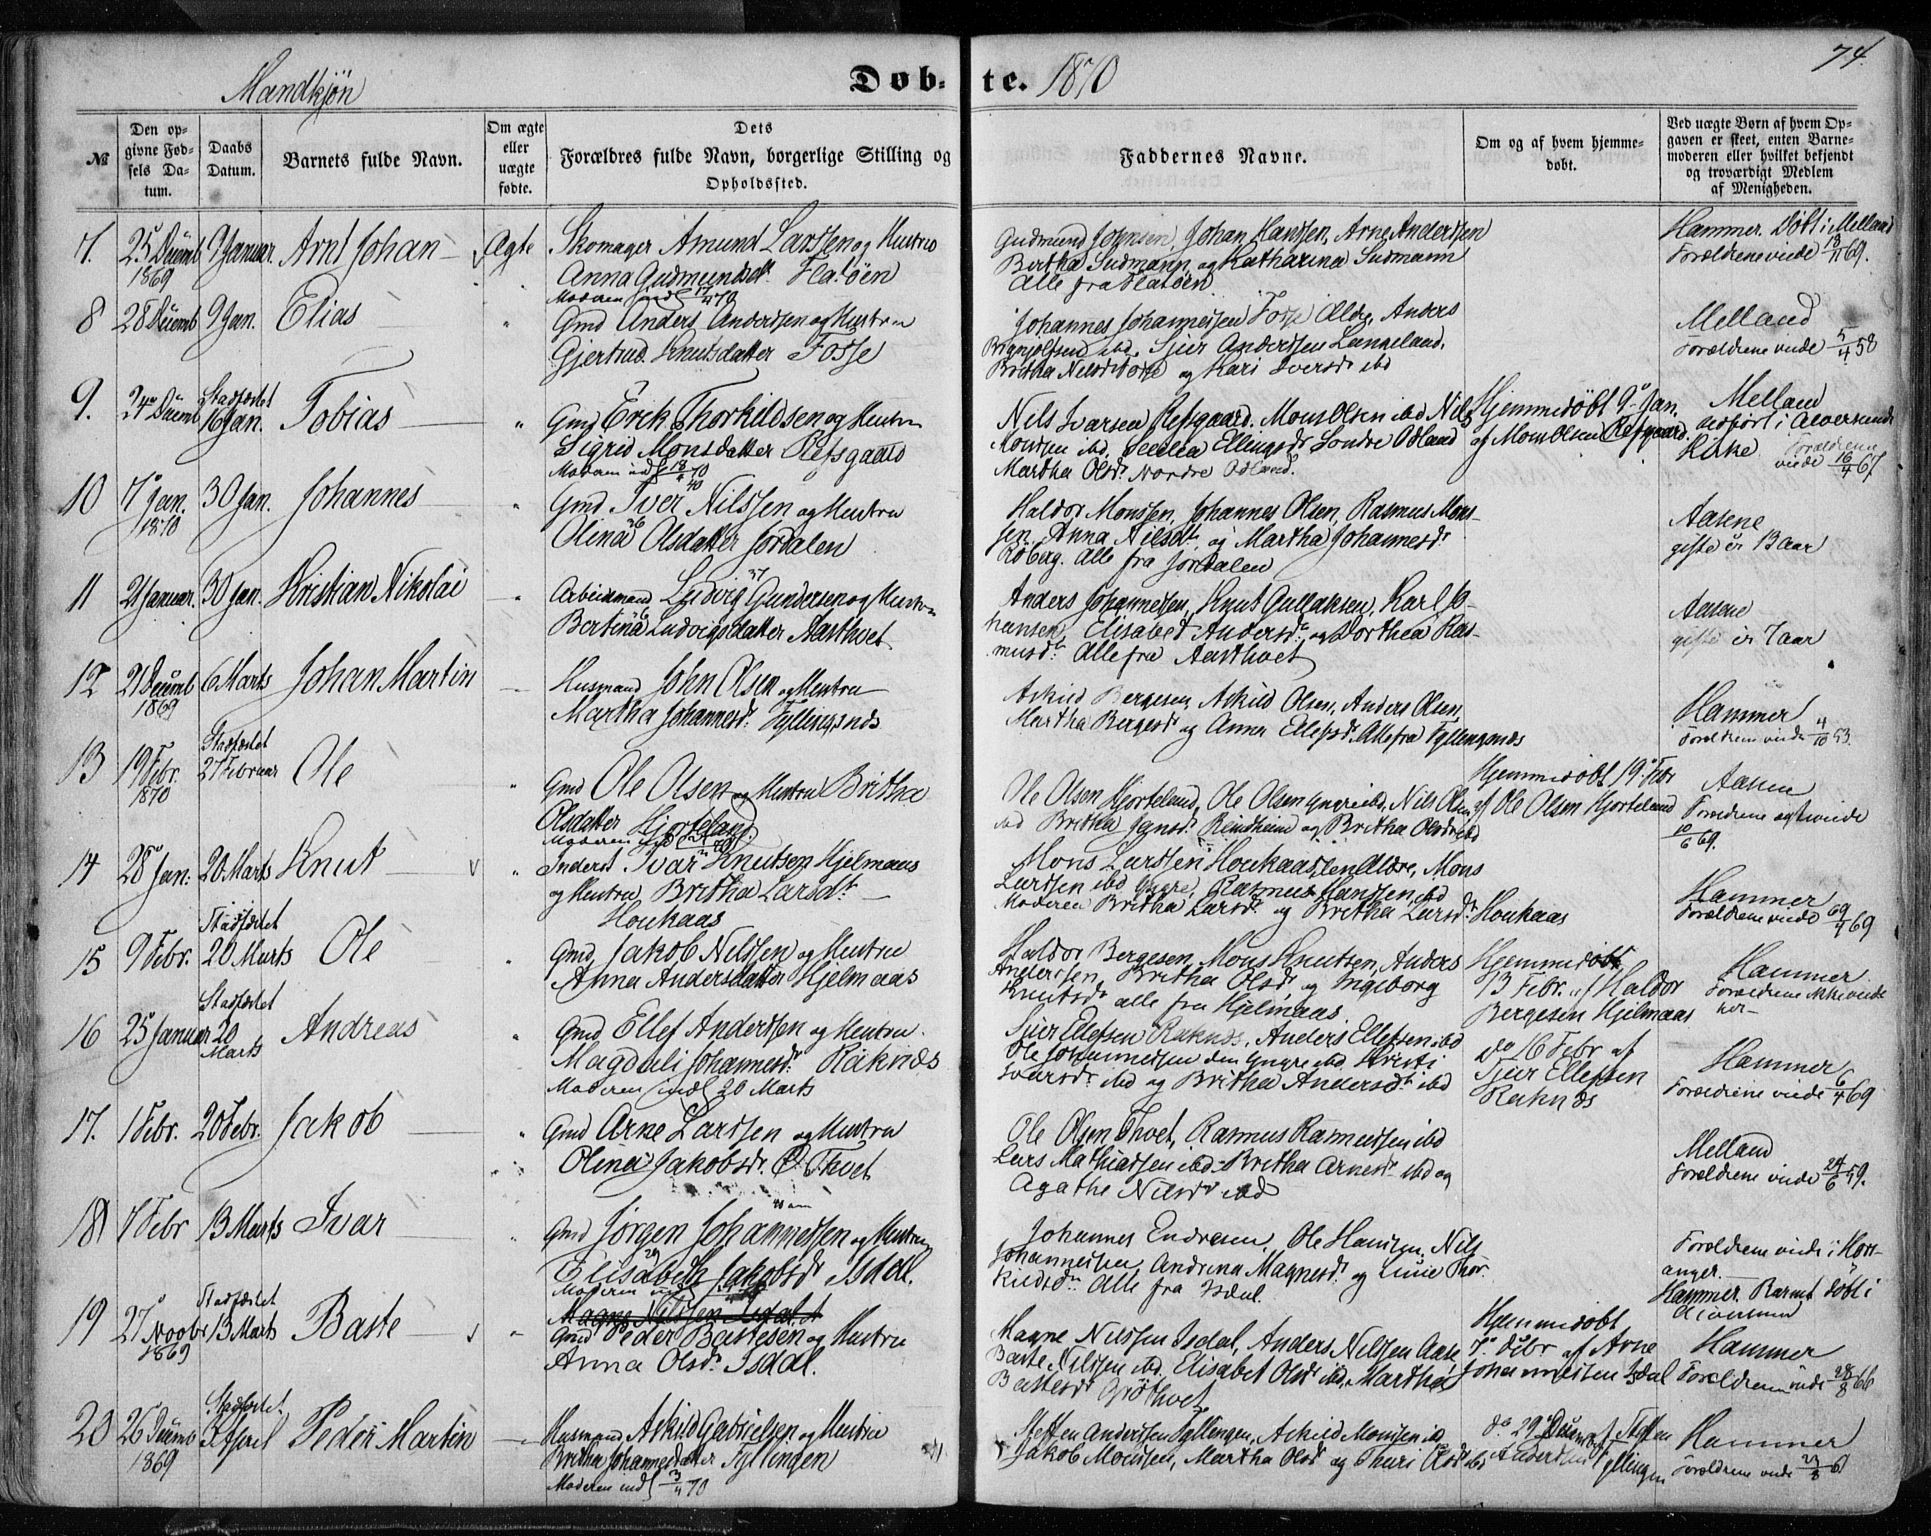 74.
Mandkjøn
Døb-te. 1870
№
Den op-
givne Fød-
sels Da-
tum.
Daabs
Datum.
Barnets fulde Navn.
Om ægte
eller
uægte
fødte.
Dets
Forældres fulde Navn, borgerlige Stilling og
Opholdssted.
Faddernes Navne.
Om og af hvem hjemme-
døbt.
Ved uægte Børn af hvem Op-
gaven er skeet, enten Barne-
moderen eller hvilket bekjendt
og troværdigt Medlem
af Menigheden.
7. 25 Decemb 1869 9 Januar. Arnt Johan Ægte
Skomager Amund Larssen og Hustru
Anna Gudmundsdt. Flatøen
Moderen indl 17/4 70
Gudmund Johnsen, Johan Hanssen, Arne Anderssen
Bertha Sudmann og Katharina Sudmann
Alle fra Flatøen
Hammer Døbt i Melland
Forældrene viede 18/11 69.
8 28 Decemb 9 Jan. Elias
Gmd Anders Anderssen og Hustru
Gjertrud Knutsdatter Fosse
Johannes Johannessen Fosse Ældre, Anders
Brynjolfsen ibd, Sjur Anderssen Langeland,
Britha Nilsdt Fosse og Kari Iversdt ibd
Melland
Forældrene viede 5/4 58
9. 24 Decemb Stadfæstet 16 Jan. Tobias
Gmd Erik Thorkildsen og Hustru
Sigrid Monsdatter Refsgaard
Moderen indl 18/4 70
Nils Ivarsen Refsgaard. Mons Olsen ibd Nils
Monsen ibd, Ellingsdr Søndre Odland
Martha Olsdr Nordre Odland.
Hjemmedøbt 9 Jan.
af Mons Olsen Refsgaard.
Melland
udført i Alversunds
Kirke Forældrene
viede 16/4 67
10 7 Jan. 1870 30 Jan. Johannes
Gmd Iver Nilssen og Hustru
Olina Olsdatter Jordalen
Haldor Monssen, Johannes Olsen, Rasmus Mons-
sen, Anna Nilsdt. og Martha Johannesdr
Alle fra Jordalen
Aasene
gifte i 13 Aar
11 21 Januar. 30 Jan. Kristian Nikolai
Arbeidsmand Ludvig Gundersen og Hustru
Bertina Ludvigsdatter Aastvet
Anders Johannessen, Knut Gullaksen, Karl Jo-
hansen, Elisabet Andersdr og Dorthea Ras-
musdr Alle fra Aastvet
Aasene
gifte i 7 aar
12 21 Decemb 1869 6 Marts Johan Martin
Husmand John Olsen og Hustru
Martha Johannesdr. Fyllingsnæs
Askild Bergesen, Askild Olsen, Anders Olsen,
Martha Bergesdr og Anna Ellefsdr. Alle fra Fyllingsnæs
Hammer
Forældrene viede 4/10 53.
13 19 Febr. 1870 Stadfæstet 27 Februar Ole
Gmd Ole Olsen og Hustru Britha
Olsdatter Hjorteland
Ole Olsen Hjorteland, Ole Olsen yngre ibd, Nils Olsen
ibd Britha Reindheim og Britha Olsdr ibd
Hjemmedøbt 19 Febr
af Ole Olsen Hjorteland
Aasene
Forældrene ægteviede
10/6 69.
14 28 Jan. 20 Marts Knut
Inderst Ivar Knutsen Hjelmaas
og Hustru Britha Larsdt.
Houkaas
Mons Larssen Houkaas, den Ældre, Mons
Larssen ibd yngre, Rasmus Hanssen ibd
Moderen Britha Larsdr. og Britha Larsdr. Houkaas
Hammer
Forældrene viede 69
15 9 Febr. Stadfæstet 20 Marts Ole
Gmd. Jakob Nilssen og Hustru
Anna Andersdatter Hjelmaas
Haldor Bergesen, Mons Knutsen, Anders
Anderssen, Britha Olsdr og Ingeborg
Knutsdr alle fra Hjelmaas
Hjemmedøbt
13 Febr. af Haldor
Bergesen Hjelmaas
Hammer
Forældrene ikke viede
her
16 25 Januar Stadfæstet 20 Marts Andreas
Gmd Ellef Anderssen og Hustru
Magdeli Johannesdr. Raknæs
Moderen indl 20 Marts
Sjur Ellefsen Raknæs, Anders Ellefsen ibd
Ole Johannessen den yngre ibd Kristi
Ivarsdr ibd og Britha Andersdr ibd
do 16 Febr af
Sjur Ellefsen
Raknæs
Hammer
Forældrene viede 6/4 69
17. 1 Febr. 20 Febr. Jakob
Gmd Arne Larssen og Hustru
Olina Jakobsdr. Thvet
Ole Olsen Thvet, Rasmus Rasmussen ibd
Lars Mathiassen ibd - Britha Arnesdr ibd og
Agathe Nilsdr ibd
Melland
Forældrene viede 24/6 59.
18 7 Febr 13 Marts Ivar
Gmd Jørgen Johannessen og Hustru
Elisabeth Jakobsdr Isdal.
Moderen indl
Johannes Endresen, Ole Hanssen, Nils
Johannessen, Andrina Magnesdr. og Thor-
kildsdr. Alle fra Isdal.
Forældrene viede i Hos-
anger.
19 27 Novbr 1869 Stadfæstet 13 Marts Baste
Magne Nilssen Isdal
Gmd Peder Bastesen og Hustru
Anna Olsdr Isdal.
Magne Nilssen Isdal, Anders Nilssen Aase
Baste Nilssen ibd, Elisabet Olsdr ibd, Martha
Bastesdr
Hjemmedøbt
7 Debr af Arne
Johannessen Isdal
Hammer Barnet døbt i
Hammer
Forældrene viede 28/8 66
20 26 Decemb 1869 Stadfæstet April Peder Martin
Husmand Askild Gabrielsen og Hustru
Britha Johannesdatter Fyllingen
Moderen indl 3/4 70
Steffen Anderssen Fyllingen, Askild Monssen ibd
Jakob Monssen, Martha Olsdr og Thuri Olsdr ibd
do 29 Decemb af Steffen
Anderssen Fyllingen
Hammer
Forældrene viede